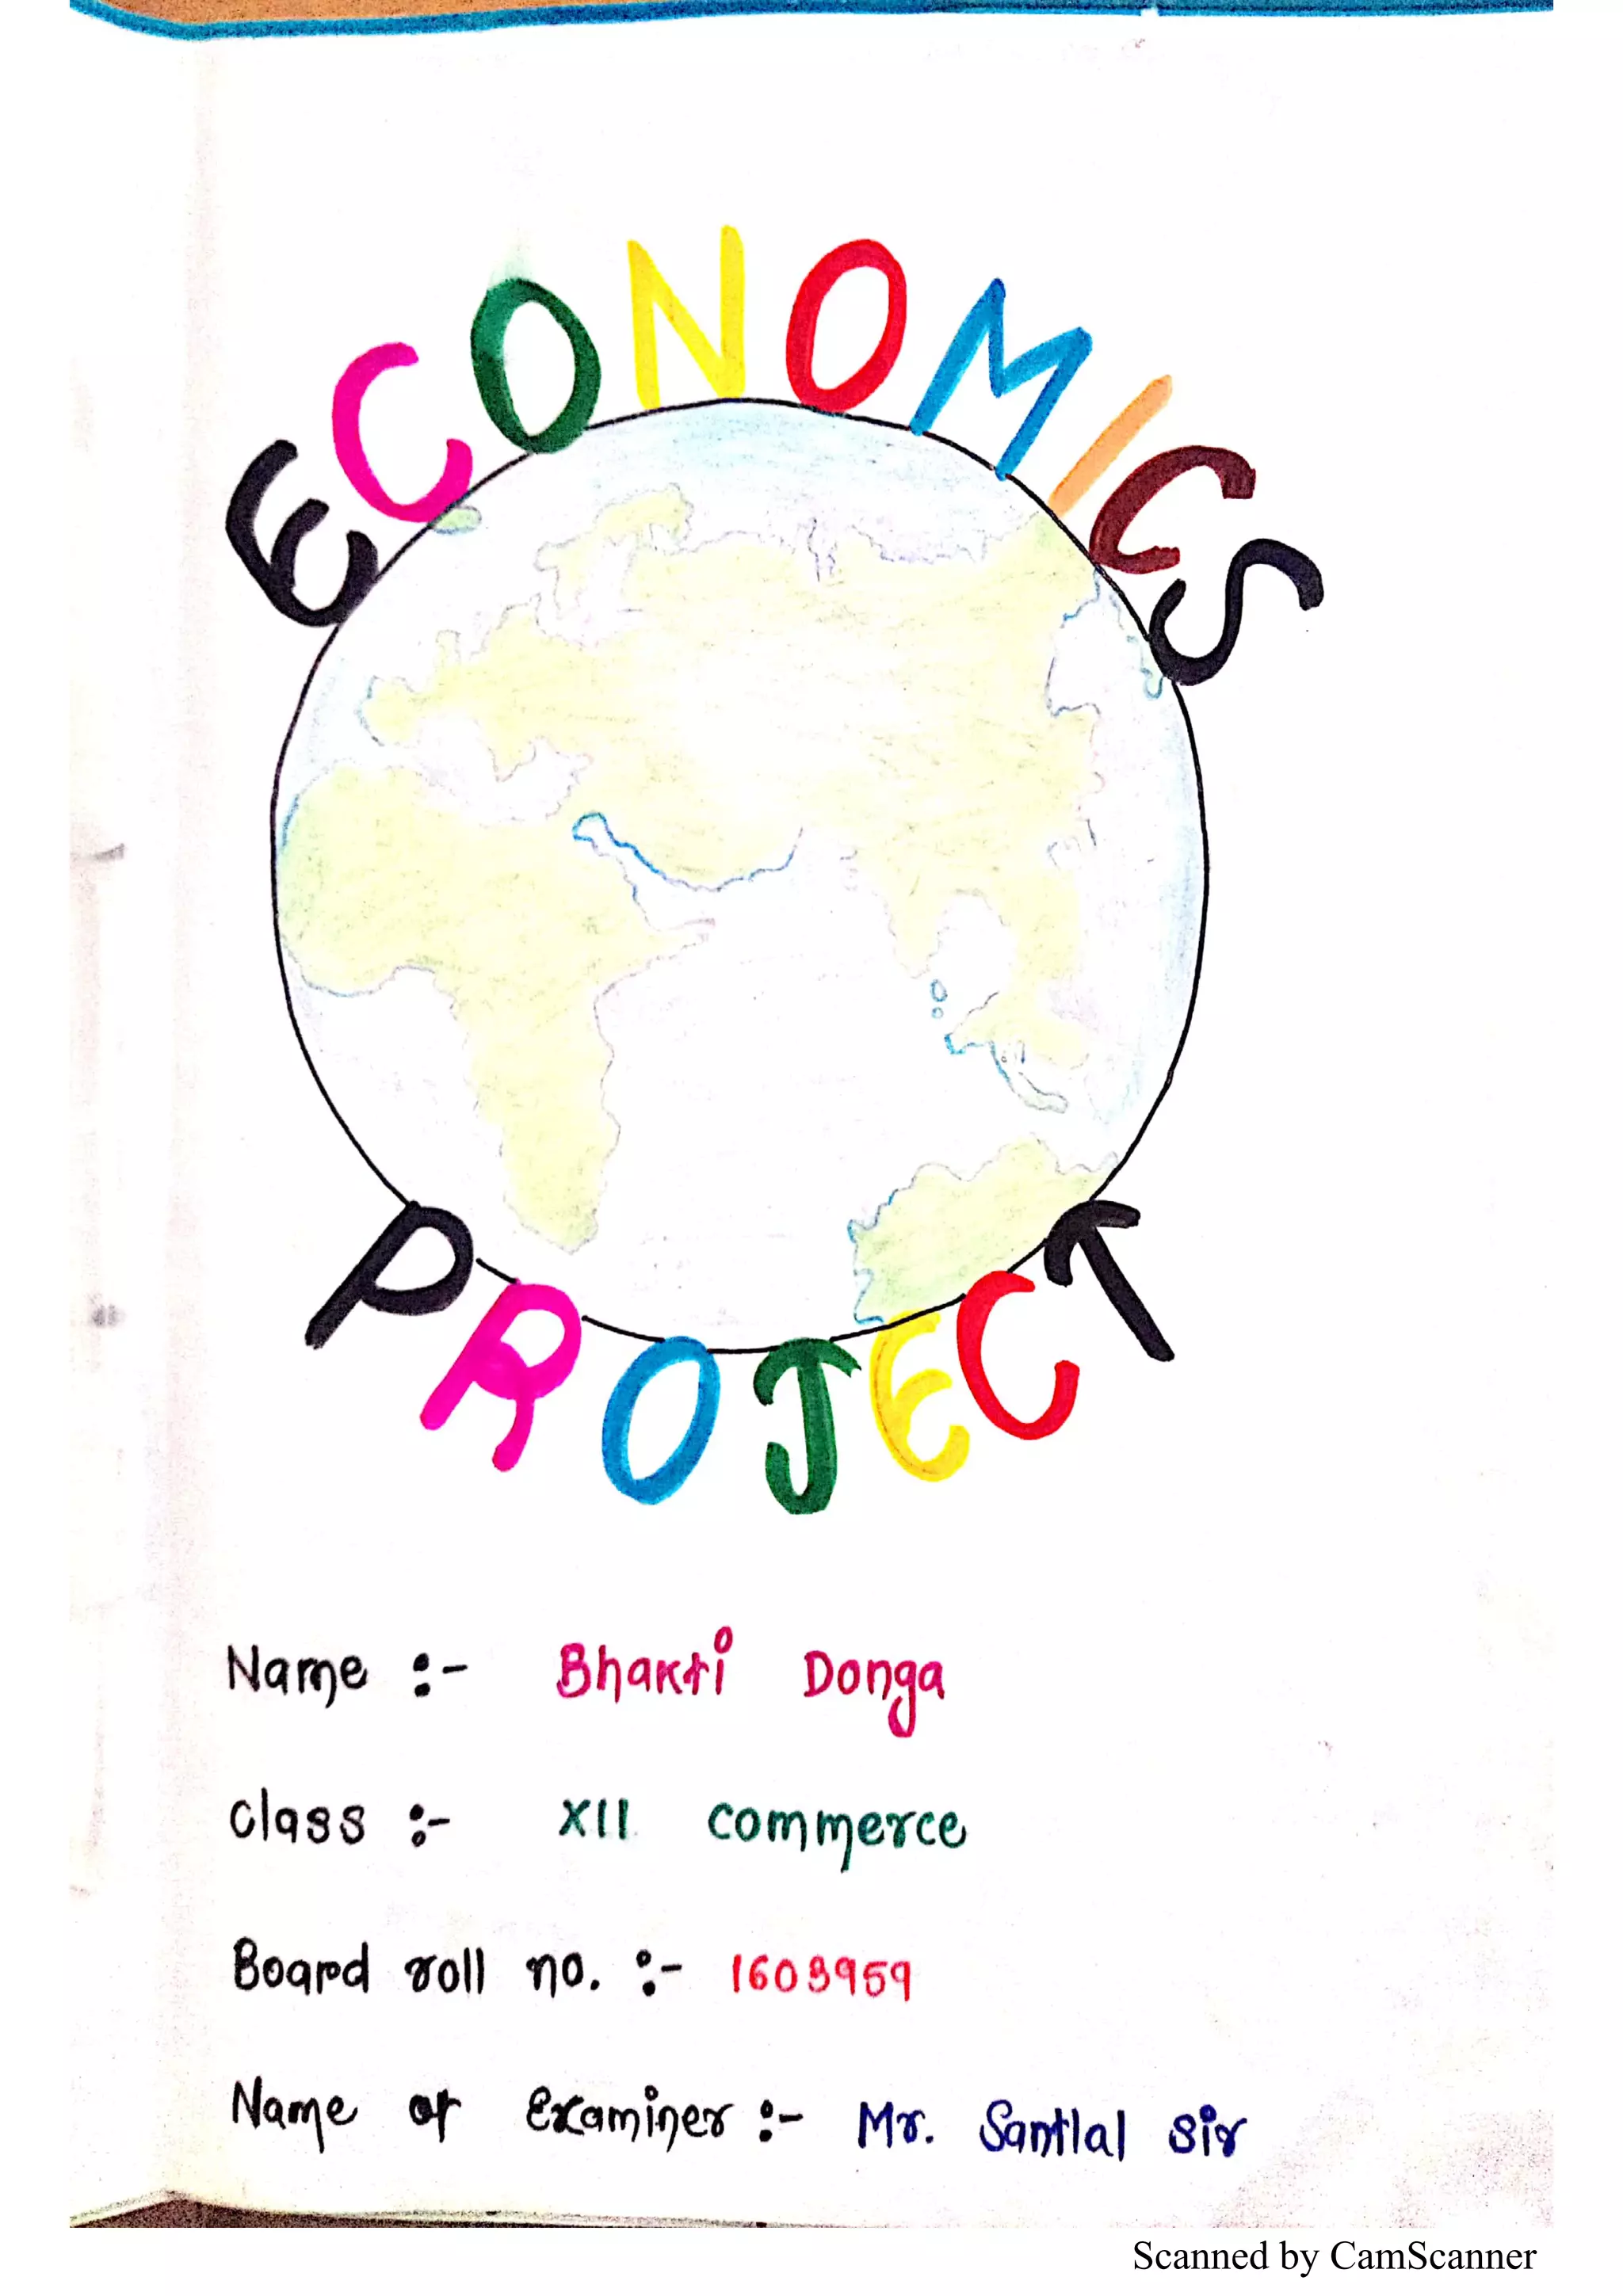 ECONOMICS
PROJECT
Name :- Bhakti Donga
class :- XII commerce
Board roll no. :- 1603959
Name of Examiner :- Mr. Santlal sir
Scanned by CamScanner